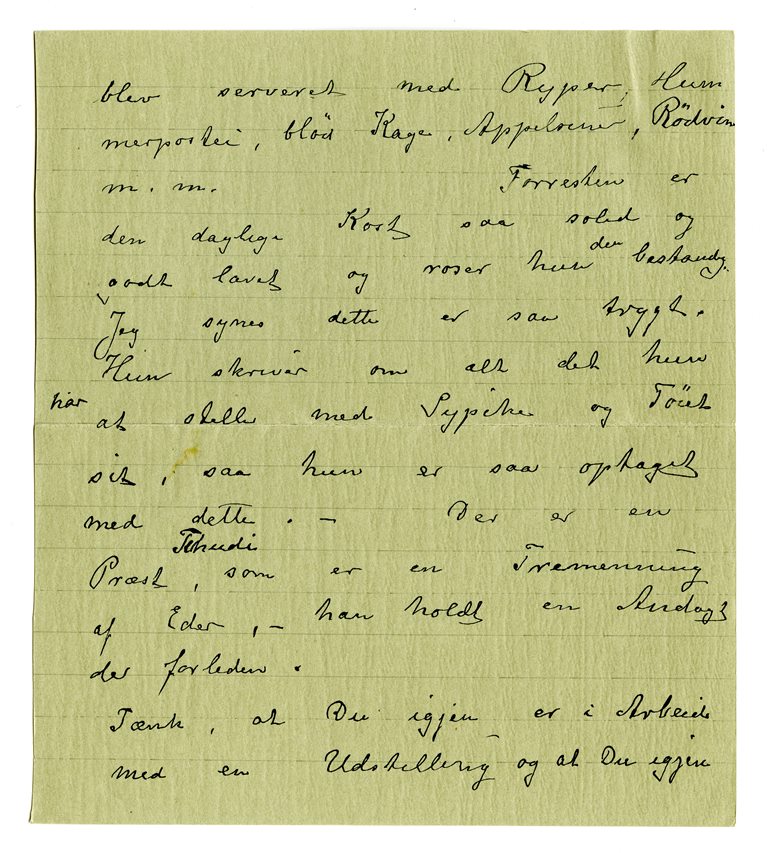 blev serveret med Ryper, Hum
merpostei, blød Kage, Appelsiner, Rödvin
m. m. Forresten er
den daglige Kost saa solid og
godt lavet og roser hun den bestandg.
Jeg synes dette er saa trygt.
Hun skriver om alt det hun
har at stelle med Sypike og Töiet
sit, saa hun er saa optaget
med dette. – Der er en
Præst Tschudi, som er en Tremenning
af Eder, – han holdt en Andagt
der forleden.
Tænk, at Du igjen er i Arbeide
med en Udstilling og at Du igjen